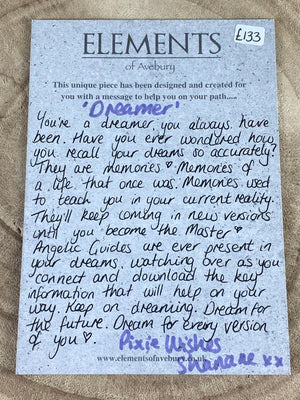 £133
ELEMENTS
of Avebury
This unique piece has been designed and created for
you with a message to help you on your path.....
'Dreamer'
You're a dreamer, you always have
been. Have you ever wondered how
you recall your dreams so accurately?
They are memories♡ Memories of
a life that once was. Memories used
to teach you in your current reality.
They'll keep coming in new versions
until you become the Master ♡
Angelic Guides are ever present in
your dreams, watching over as you
connect and download the key
information that will help on your
way. Keep on dreaming. Dream for
the future. Dream for every version
of you ♡.
Pixie Wishes
www.elementsofavebury.co.uk
xx